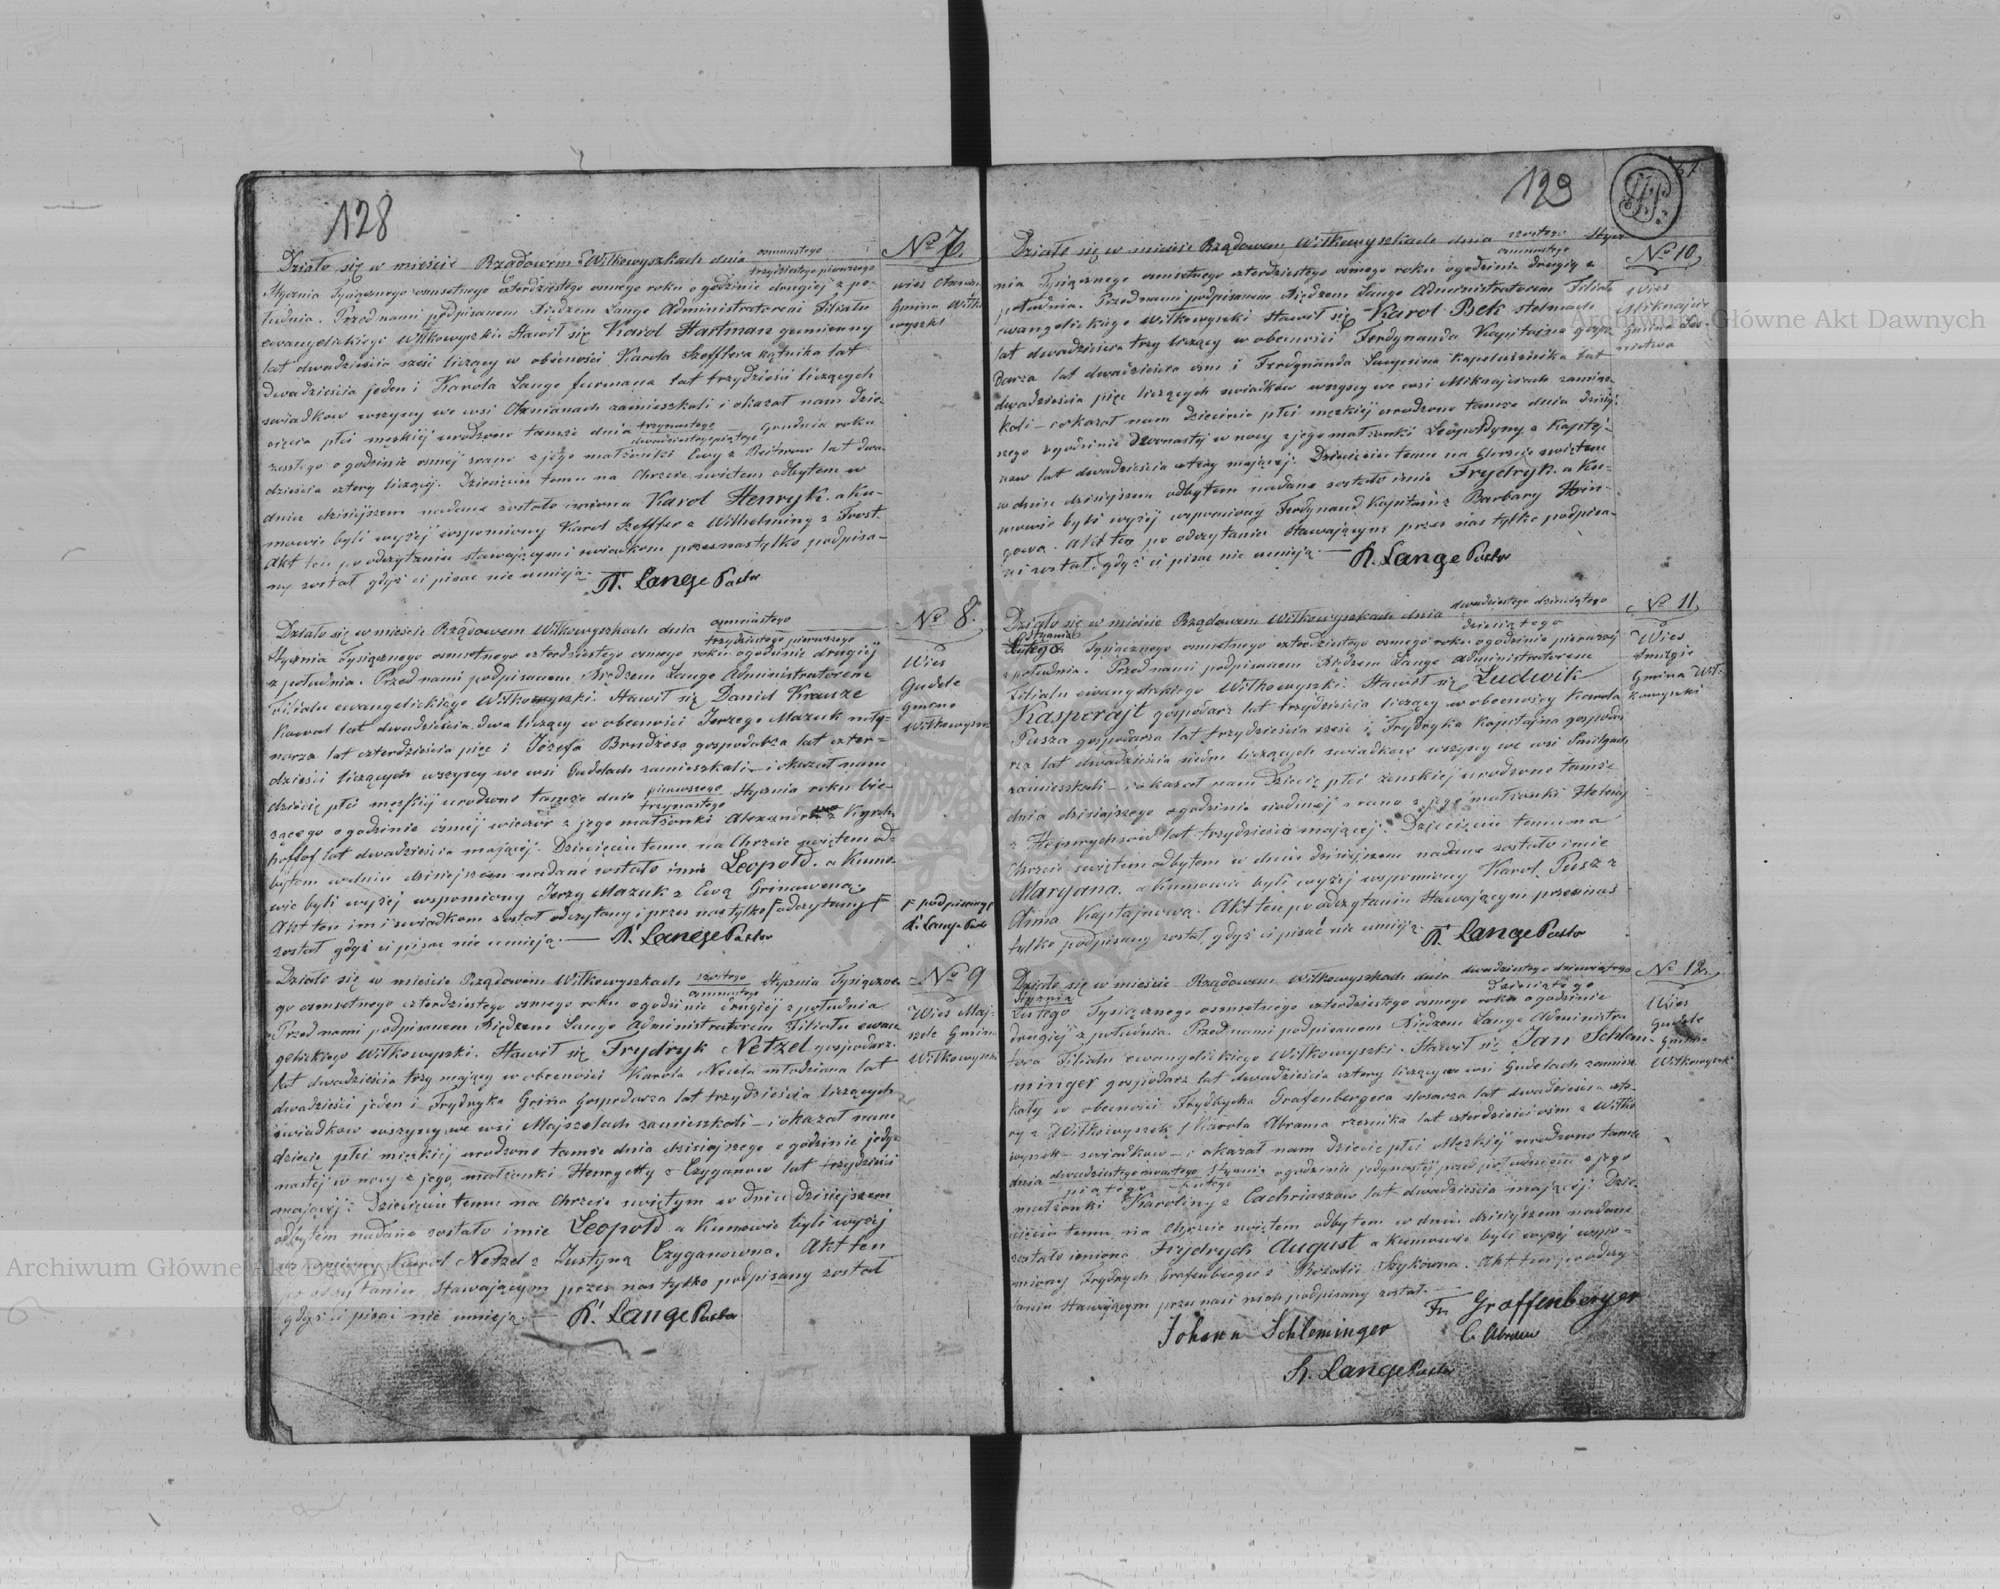 128
No 7.
Działo się w mieście Rządowem Wiłkowyszkach dnia osmnastego / trzydziestego pierwszego
Stycznia Tysiącznego osmsetnego czterdziestego osmego roku o godzinie drugiej z po-
łudnia. Przed nami podpisanem Xiędzem Lange Administratorem Filiału
ewangelickiego Wiłkowyszki Stawił się Karol Hartman gumienny
lat dwadzieścia sześć liczący w obecności Karola Szefflera kątnika lat
dwadzieścia jeden i Karola Lange furmana lat trzydzieści liczących
swiadkow wszyscy we wsi zamieszkali i okazał nam dzie-
cięcia płci męskiej urodzone tamże dnia trzynastego / dwudziestegopiątego Grudnia roku
zeszłego o godzinie osmej zrana z jego małżonki Ewy z Reiterow lat dwa-
dzieścia cztery liczącej. Dziecięciu temu na Chrzcie swiętem odbytem w
dniu dzisiejszem nadane zostało imiona Karol Henryk. a Ku-
mowie byli wyżej wspomiony Karol Szeffler z Wilhelminą z
Akt ten po odczytaniu stawającym i swiadkom przez nas tylko podpisa-
ny został gdyż ci pisac nie umieją.
Lange Pastor
wies
Gmina Wiłko
wyszki
No 8.
Działo się w mieście Rządowem Wiłkowyszkach dnia osmnastego / trzydziestego pierwszego
Stycznia Tysiącznego osmsetnego czterdziestego osmego roku o godzinie drugiej
z południa. Przed nami podpisanem Xiędzem Lange Administratorem
Filiału ewangelickiego Wiłkowyszki. Stawił się Daniel Krauze
Kowal lat dwadzieścia dwa liczący w obecności Jerzego Mazuk mły-
narza lat czterdzieścia pięć i Józefa Brudżesa gospodarza lat czter-
dzieści liczących wszyscy we wsi Gudelach zamieszkali i okazał nam
dziecię płci męskiej urodzone tamże dnia pierwszego / trzynastego Stycznia roku bie-
żącego o godzinie osmej wieczór z jego małżonki Alexandry z
lat dwadzieścia mającej. Dziecięciu temu na Chrzcie swiętem od-
bytem w dniu dzisiejszem nadane zostało imie Leopold. a Kumo-
wie byli wyżej wspomiony Jerzy Mazuk z Ewą
Akt ten im i swiadkom został odczytany i przez nas tylko
został gdyż ci pisac nie umieją.
Lange Pastor
Wies
Gudele
Gmina
Wiłkowyszki
podpisany
Lange Pastor
No 9
Działo się w mieście Rządowem Wiłkowyszkach szóstego / osmnastego Stycznia Tysiączne-
go osmsetnego czterdziestego osmego roku o godzinie drugiej z południa
Przed nami podpisanem Xiędzem Lange Administratorem Filiału ewan
gelickiego Wiłkowyszki. Stawił się Frydryk Netzel gospodarz
lat dwadzieścia trzy mający w obecności Karola Necela młodziana lat
dwadzieści jeden i Frydryka gospodarza lat trzydzieścia liczących
swiadkow wszyscy we wsi Majszelach zamieszkali i okazał nam
dziecię płci męzkiej urodzone tamże dnia dzisiajszego o godzinie jedy-
nastej w nocy z jego małżonki Henryetty z Czyganow lat trzydzieści
mającej. Dziecięciu temu na Chrzcie swiętym w dniu dzisiejszem
odbytem nadane zostało imie Leopold a Kumowie byli wyżej
wspomiony Karol Netzel z Justyną Czyganowna. Akt ten
po odczytaniu Stawającym przez nas tylko podpisany został
gdyż ci pisac nie umieją.
Lange Pastor
Wies Maj-
szele Gmina
Wiłkowyszki
129
67
No 10
Działo się w mieście Rządowem Wiłkowyszkach dnia szostego / osmnastego Stycz-
nia Tysiącznego osmsetnego czterdziestego osmego roku o godzinie drugiej z
południa. Przed nami podpisanem Xiędzem Lange Administratorem Filiału
ewangelickiego Wiłkowyszki Stawił się Karol Bek stelmach
lat dwadzieścia trzy liczący w obecności Ferdynanda Kapitaina gospo-
darza lat dwadzieścia osm i Ferdynanda kapelusznika lat
dwadzieścia pięć liczących swiadków wszyscy we wsi Miknajciach zamiesz-
kali i okazał nam Dziecięcie płci męzkiej urodzone tamże dnia dzisiej-
szego o godzinie dwonastej w nocy z jego małżonki Leopoldyny z Kaptej-
now lat dwadzieścia cztery mającej. Dziecięciu temu na Chrzcie swiętem
w dniu dzisiejszem odbytem nadane zostało imie Frydryk. a Ku-
mowie byli wyżej wspomiony Ferdynand Kapitain z Barbarą
Akt ten po odczytaniu Stawającym przez nas tylko podpisa-
ni został, gdyż ci pisac nie umieją.
Lange Pastor
Wies
Gmina
No 11
Działo się w mieście Rządowem Wiłkowyszkach dnia dwudziestego dziewiątego / dziesiątego
Stycznia / Lutego Tysiącznego osmsetnego czterdziestego osmego roku o godzinie pierwszej
z południa. Przed nami podpisanem Xiędzem Lange Administratorem
Filiału ewangelickiego Wiłkowyszki. Stawił się Ludwik
Kasperajt gospodarz lat trzydzieścia liczący w obecności Karola
Pusza gospodarza lat trzydzieścia szesc i Frydryka Kapitajna gospoda-
rza lat dwadzieścia siedm liczących swiadkow wszyscy we wsi Smilgach
zamieszkali i okazał nam Dziecię płci żenskiej urodzone tamże
dnia dzisiajszego o godzinie siodmej z rana z jego małżonki Heleny
z Hejnrychsow lat trzydzieścia mającej. Dziecięciu temu na
Chrzcie swiętem odbytem w dniu dzisiejszem nadane zostało imie
Maryana. a Kumowie byli wyżej wspomiony Karol Pusz z
Anna Kaptajnową. Akt ten po odczytaniu Stawającym przez nas
tylko podpisany został gdyż ci pisać nie umieją.
Lange Pastor
Wies
Smilgie
Gmina Wił-
kowyszki
No 12
Działo się w mieście Rządowem Wiłkowyszkach dnia dwudziestego dziewiątego / dziesiątego
Stycznia / Lutego Tysiącznego osmsetnego czterdziestego osmego roku o godzinie
drugiej z południa. Przed nami podpisanem Xiędzem Lange Administra
tora Filiału ewangelickiego Wiłkowyszki. Stawił się Jan Schlem-
minger gospodarz lat dwadzieścia cztery liczący we wsi Gudelach zamiesz
kały w obecności Frydrycha Grafenbergera slosarza lat dwadzieścia czte-
ry z Wiłkowyszek i Karola Abrama rzeznika lat czterdzieści osm z Wiłko
wyszek swiadkow i okazał nam dziecię płci Męzkiej urodzone tamże
dnia dwudziestego czwartego Stycznia / piątego Lutego o godzinie jedynastej przed południem z jego
małżonki Karoliny z Cachriaszow lat dwadzieścia mającej. Dzie-
cięciu temu na Chrzcie swiętem odbytem w dniu dzisiejszem nadane
zostało imiona Frydrych August a Kumowie byli wyżej wspo-
miony Frydrych Grafenberger z Rozalii Szykówna. Akt ten po odczy-
taniu Stawającym przez nas i nich podpisany został.
Fr. Graffenberger
Johann Schleminger
C. Abram
Lange Pastor
Wies
Gudele
Gmina
Wiłkowyszki
Archiwum Główne Akt Dawnych
Archiwum Główne Akt Dawnych